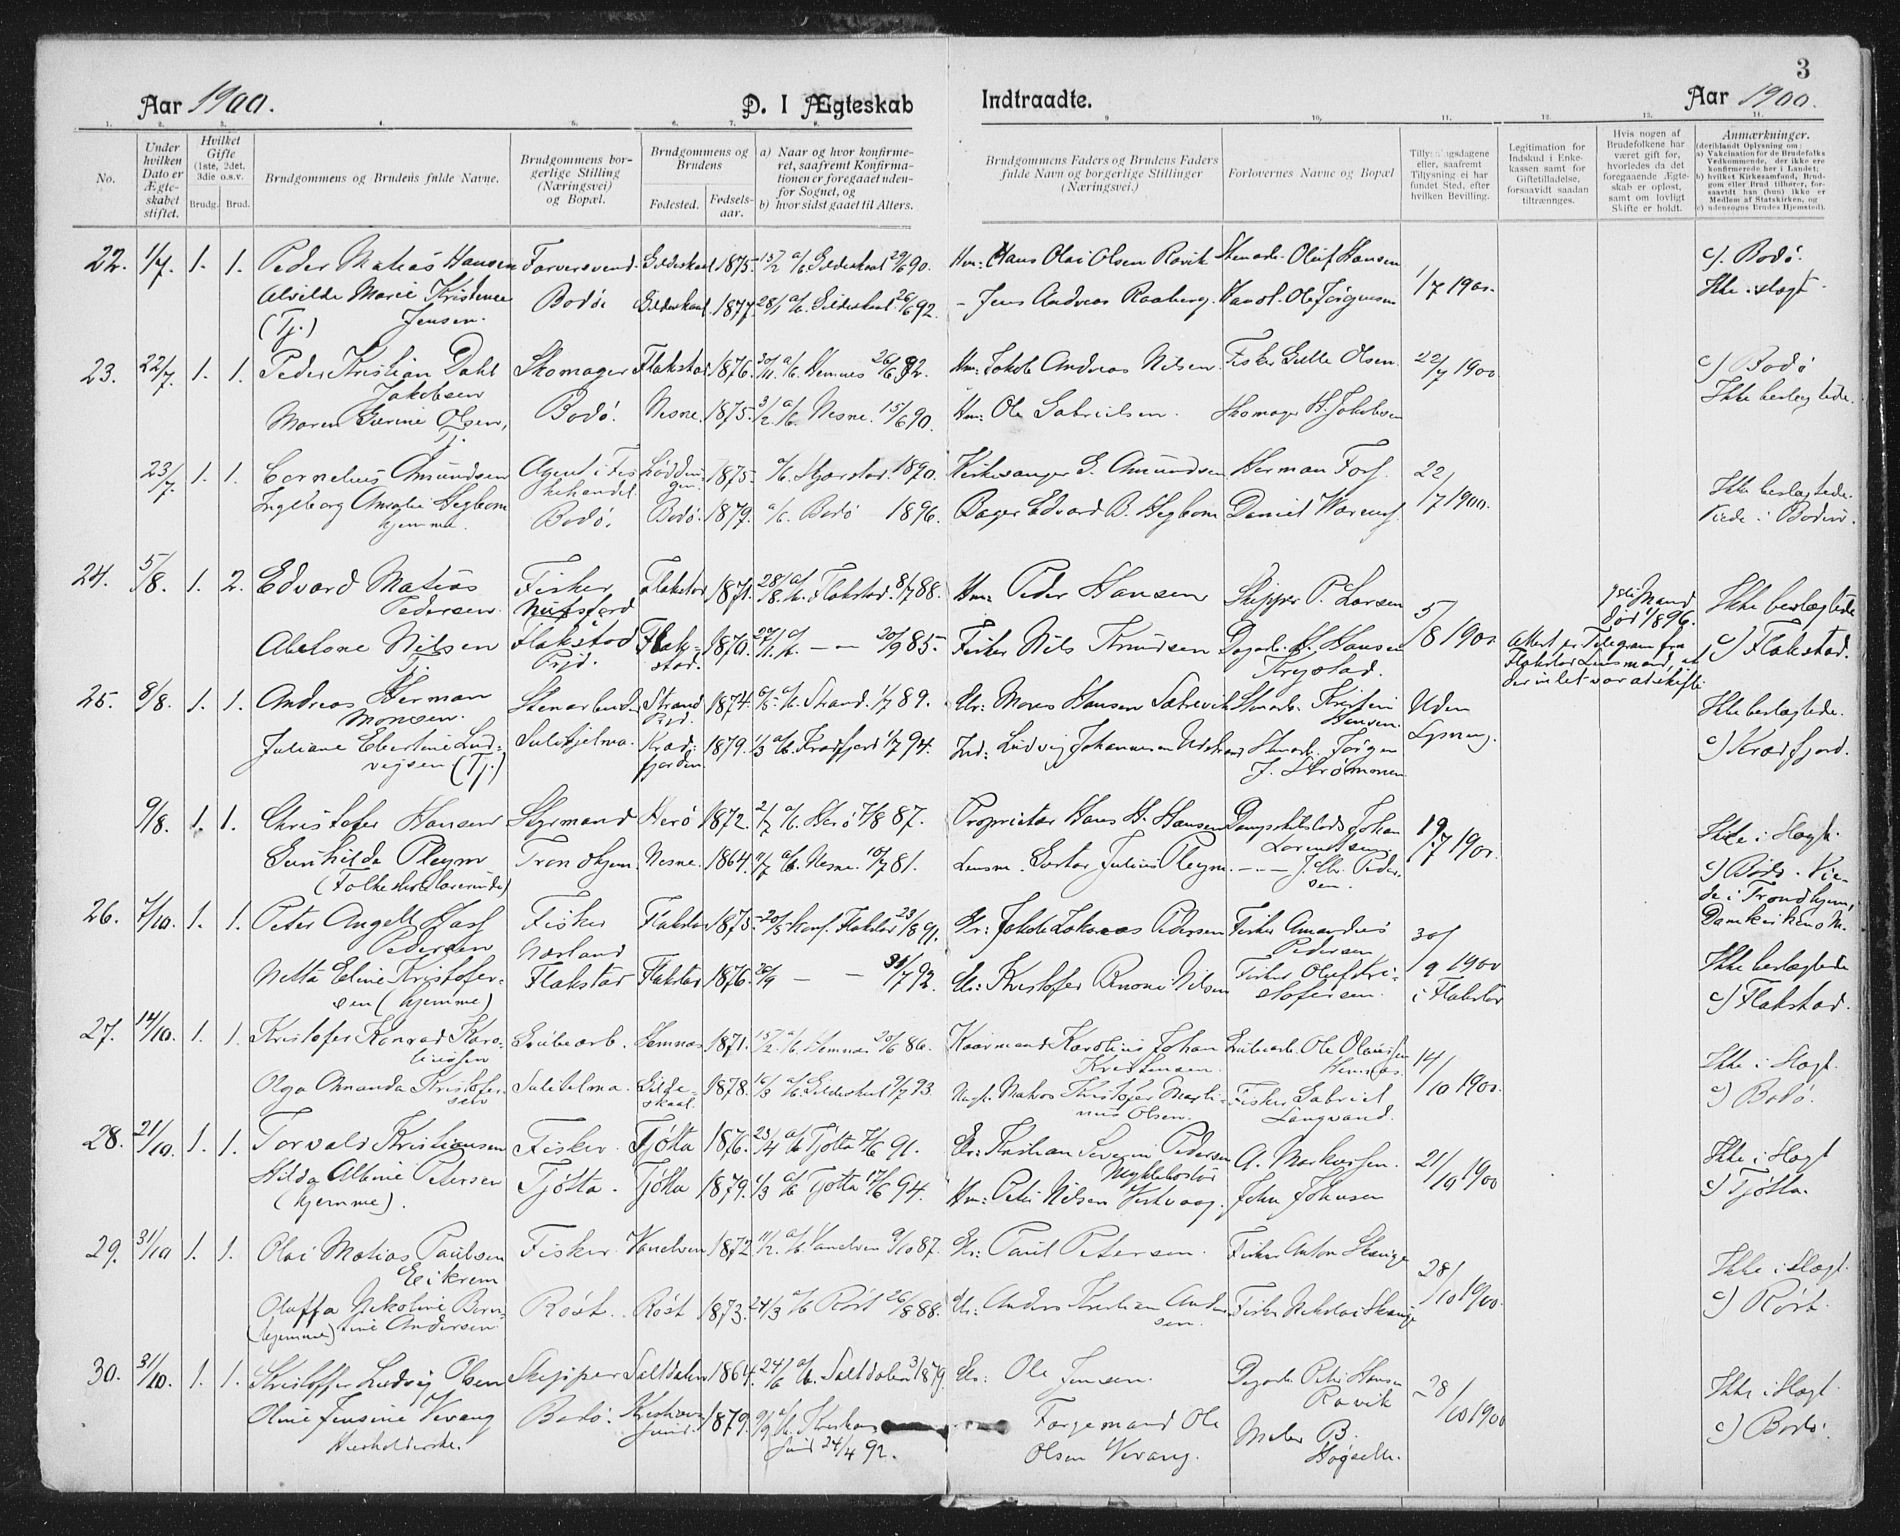 3
Aar 1900.
D. I Ægteskab
Indtraadte.
Aar 1900.
1. 2. 3. 4. 5. 6. 7. 8. 9. 10. 11. 12. 13. 14.
No.
Under hvilken Dato er Ægteskabet stiftet.
Hvilket Gifte (1ste, 2det, 3die o.s.v.
Brudg. Brud.
Brudgommens og Brudens fulde Navne.
Brudgommens borgerlige Stilling (Næringsvei) og Bopæl.
Brudgommens og Brudens
Fødested. Fødselsaar.
a) Naar og hvor konfirmeret, saafremt Konfirmationen er foregaaet udenfor Sognet, og
b) hvor sidst gaaet til Alters.
Brudgommens Faders og Brudens Faders fulde Navn og borgerlige Stillinger (Næringsvei.)
Forlovernes Navne og Bopæl
Tillysningsdagene eller, saafremt Tillysning ei har fundet Sted, efter hvilken Bevilling.
Legitimation for Indskud i Enkekassen samt for Giftetilladelse, forsaavidt saadan tiltrænges.
Hvis nogen af Brudefolkene har været gift før, hvorledes da det foregaaende Ægteskab er opløst, samt om lovligt Skifte er holdt.
Anmærkninger.
(deriblandt Oplysning om:
a) Vakcination for de Brudefolks Vedkommende, der ikke ere konfirmerede her i Landet;
b) hvilket Kirkesamfund, Brudgom eller Brud tilhører, forsaavidt han (hun) ikke er Medlem af Statskirken, og
c) udensogns Brudes Hjemsted).
22. 1/7. 1. 1. Peder Matias Hansen Farversvend. Gildeskaal 1875. 15/2 a/b Gildeskaal 29/6 90. Hm: Hans Olai Olsen Røvik Stenarb. Oluf Hansen 1/7 1900. c) Bodø.
Alvilde Marie Kristence Bodø Gildeskaal. 1877. 28/1 a/b. Gildeskaal 26/6 92. - Jens Andreas Raaberg. Ole Jørgensen Ikke i slægt.
(Tj.) Jensen.
23. 22/7. 1. 1. Peder Kristian Dahl Skomager Flakstad 1876. 30/11 a/b. Hemnes 26/6 92. Hm: Jakob Andreas Nilsen Fisker Olsen. 22/7 1900 c) Bodø
Jakobsen Ikke beslægtede.
Maren Olsen, Bodø. Nesne. 1875. 3/2 a/b. Nesne. 15/6 90. Hm: Ole Gabrielsen. Skomager H. Jakobsen
Tj.
23/7. 1. 1. Cornelius Amundsen Agent i Fis Lødden 1875. a/b. 1890. Kirkesanger E. Amundsen Herman 22/7 1900.
kehandel gen. Ikke beslægtede.
Ingeborg Amalie Hegbom Bodø. Bodø. 1879. a/b. Bodø 1896. Bager Edvard B. Hegbom Daniel Viede i Bodin.
hjemme.
24. 5/8. 1. 2. Edvard Matias Fisker Flakstad 1871. 28/8. a/b. Flakstad. 8/7 88. Hm: Peder Hansen Skipper P. Larsen 5/8 1900 Mand Ikke beslægtede
Pedersen Nusfjord død 1896.
Abelone Nilsen Flakstad Flak- 1870. a/b. — 20/9 85. Fisker Nils Knudsen Dagarb. H. Hansen Attest pr Telegram fra c) Flakstad.
Tj. Prgd. stad. Krystad. Flakstad Lensmand, at
der intet var at skifte
25. 8/8. 1. 1. Andreas Herman Stenarbeider Strand 1874. a/b. Strand. 1/7 89. Gr: Mons Hansen Stenarb. Kristen Uden Ikke beslægtede.
Monsen. Prgd. Hansen Lysning.
Juliane Ebertine Lud- Sulitjelma. Kvæd- 1879. 1/3 a/b. Kvædfjord 1/7 94. Ind: Ludvig Johannesen Stenarb. Jørgen c) Kvædfjord.
vigsen (Tj.) fjorden J. Strømmen
9/8. 1. 1. Christofer Hansen Styrmand Herø 1872. 2/7 a/b. Herø 7/8 87. Proprietær Hans H. Hansen Dampskibslods Johan 19/7 1900. Ikke i Slægt.
Gunhilda Pleym Trondhjem. Nesne. 1864. 9/7 a/b. Nesne. 10/7 81. Lensm. Julius Pleym. Lorentsen. — J. Chr. Peder- c) Bodø. Vie-
(Folkeskolelærerinde) sen. de i Trondhjem,
26. 7/10. 1. 1. Peter Angell Fisker Flakstad 1875. 20/5 Konf. Flakstad 23/8 91. Gr: Pedersen Fisker Amandus 30/9 1900 Domkirkens M.
Pedersen Norland Pedersen Ikke beslægtede
Netta Eline Kristofer- Flakstad Flakstad 1876. 26/9 — — 31/7 92. Gr: Kristofer Nilsen Fisker Oluf Kri- i Flakstad
sen (hjemme) stofersen. c) Flakstad.
27. 14/10. 1. 1. Kristofer Konrad Karo- Grubearb. Hemnes 1871. 15/2 a/b. Hemnes 20/6 86. Kaarmand Karolius Johan Grubearb. Ole Olaussen 14/10 1900. Ikke i Slægt.
liussen Kristensen. Hemnes.
Olga Amanda Kristofer- Sulitelma. Gilde- 1878. 16/3 a/b. Gildeskaal 9/7 93. Matros Kristofer Marti- Fisker Gabriel c) Bodø.
sen skaal. nus Olsen. Langvand.
28. 21/10. 1. 1. Torvald Kristiansen Fisker. Tjøtta 1876. 23/4 a/b Tjøtta 7/6 91. Gr: Kristian Severin Pedersen A. Markussen. 21/10 1900 Ikke i Slægt
Hilda Albine Petersen Tjøtta. Tjøtta 1879. 1/3 a/b Tjøtta 17/6 94. Hm: Peter Nilsen Vistvaag. John Johnsen c) Tjøtta.
(hjemme).
29. 31/10 1. 1. Olai Matias Paulsen Fisker. Vandven 1872. 11/2. a/b Vandven 9/10 87. Gr: Paul Petersen. Fisker Anton 28/10 1900. Ikke i Slægt.
Eikrem
Oluffa Nikoline Beren- Røst. Røst 1873. 24/3 a/b Røst 26/8 88. Gr: Anders Kristian Ander Fisker Nikolai c) Røst.
(hjemme) tine Andersen. sen.
30. 31/10. 1. 1. Kristoffer Ludvig Olsen Skipper Saltdalen 1864. 24/6 a/b. Saltdalen 3/8 79. Gr: Ole Jensen. Dagarb. Peter Hansen 28/10 1900 Ikke i Slægt.
Røvik
Oline Jensine Vevang Bodø. Kristian- 1879. 9/9 a/b. Kristian Forgemand Ole Maler B. c) Bodø.
Husholderske. sund. sund 24/4 92. Olsen Vevang. Høgseth.